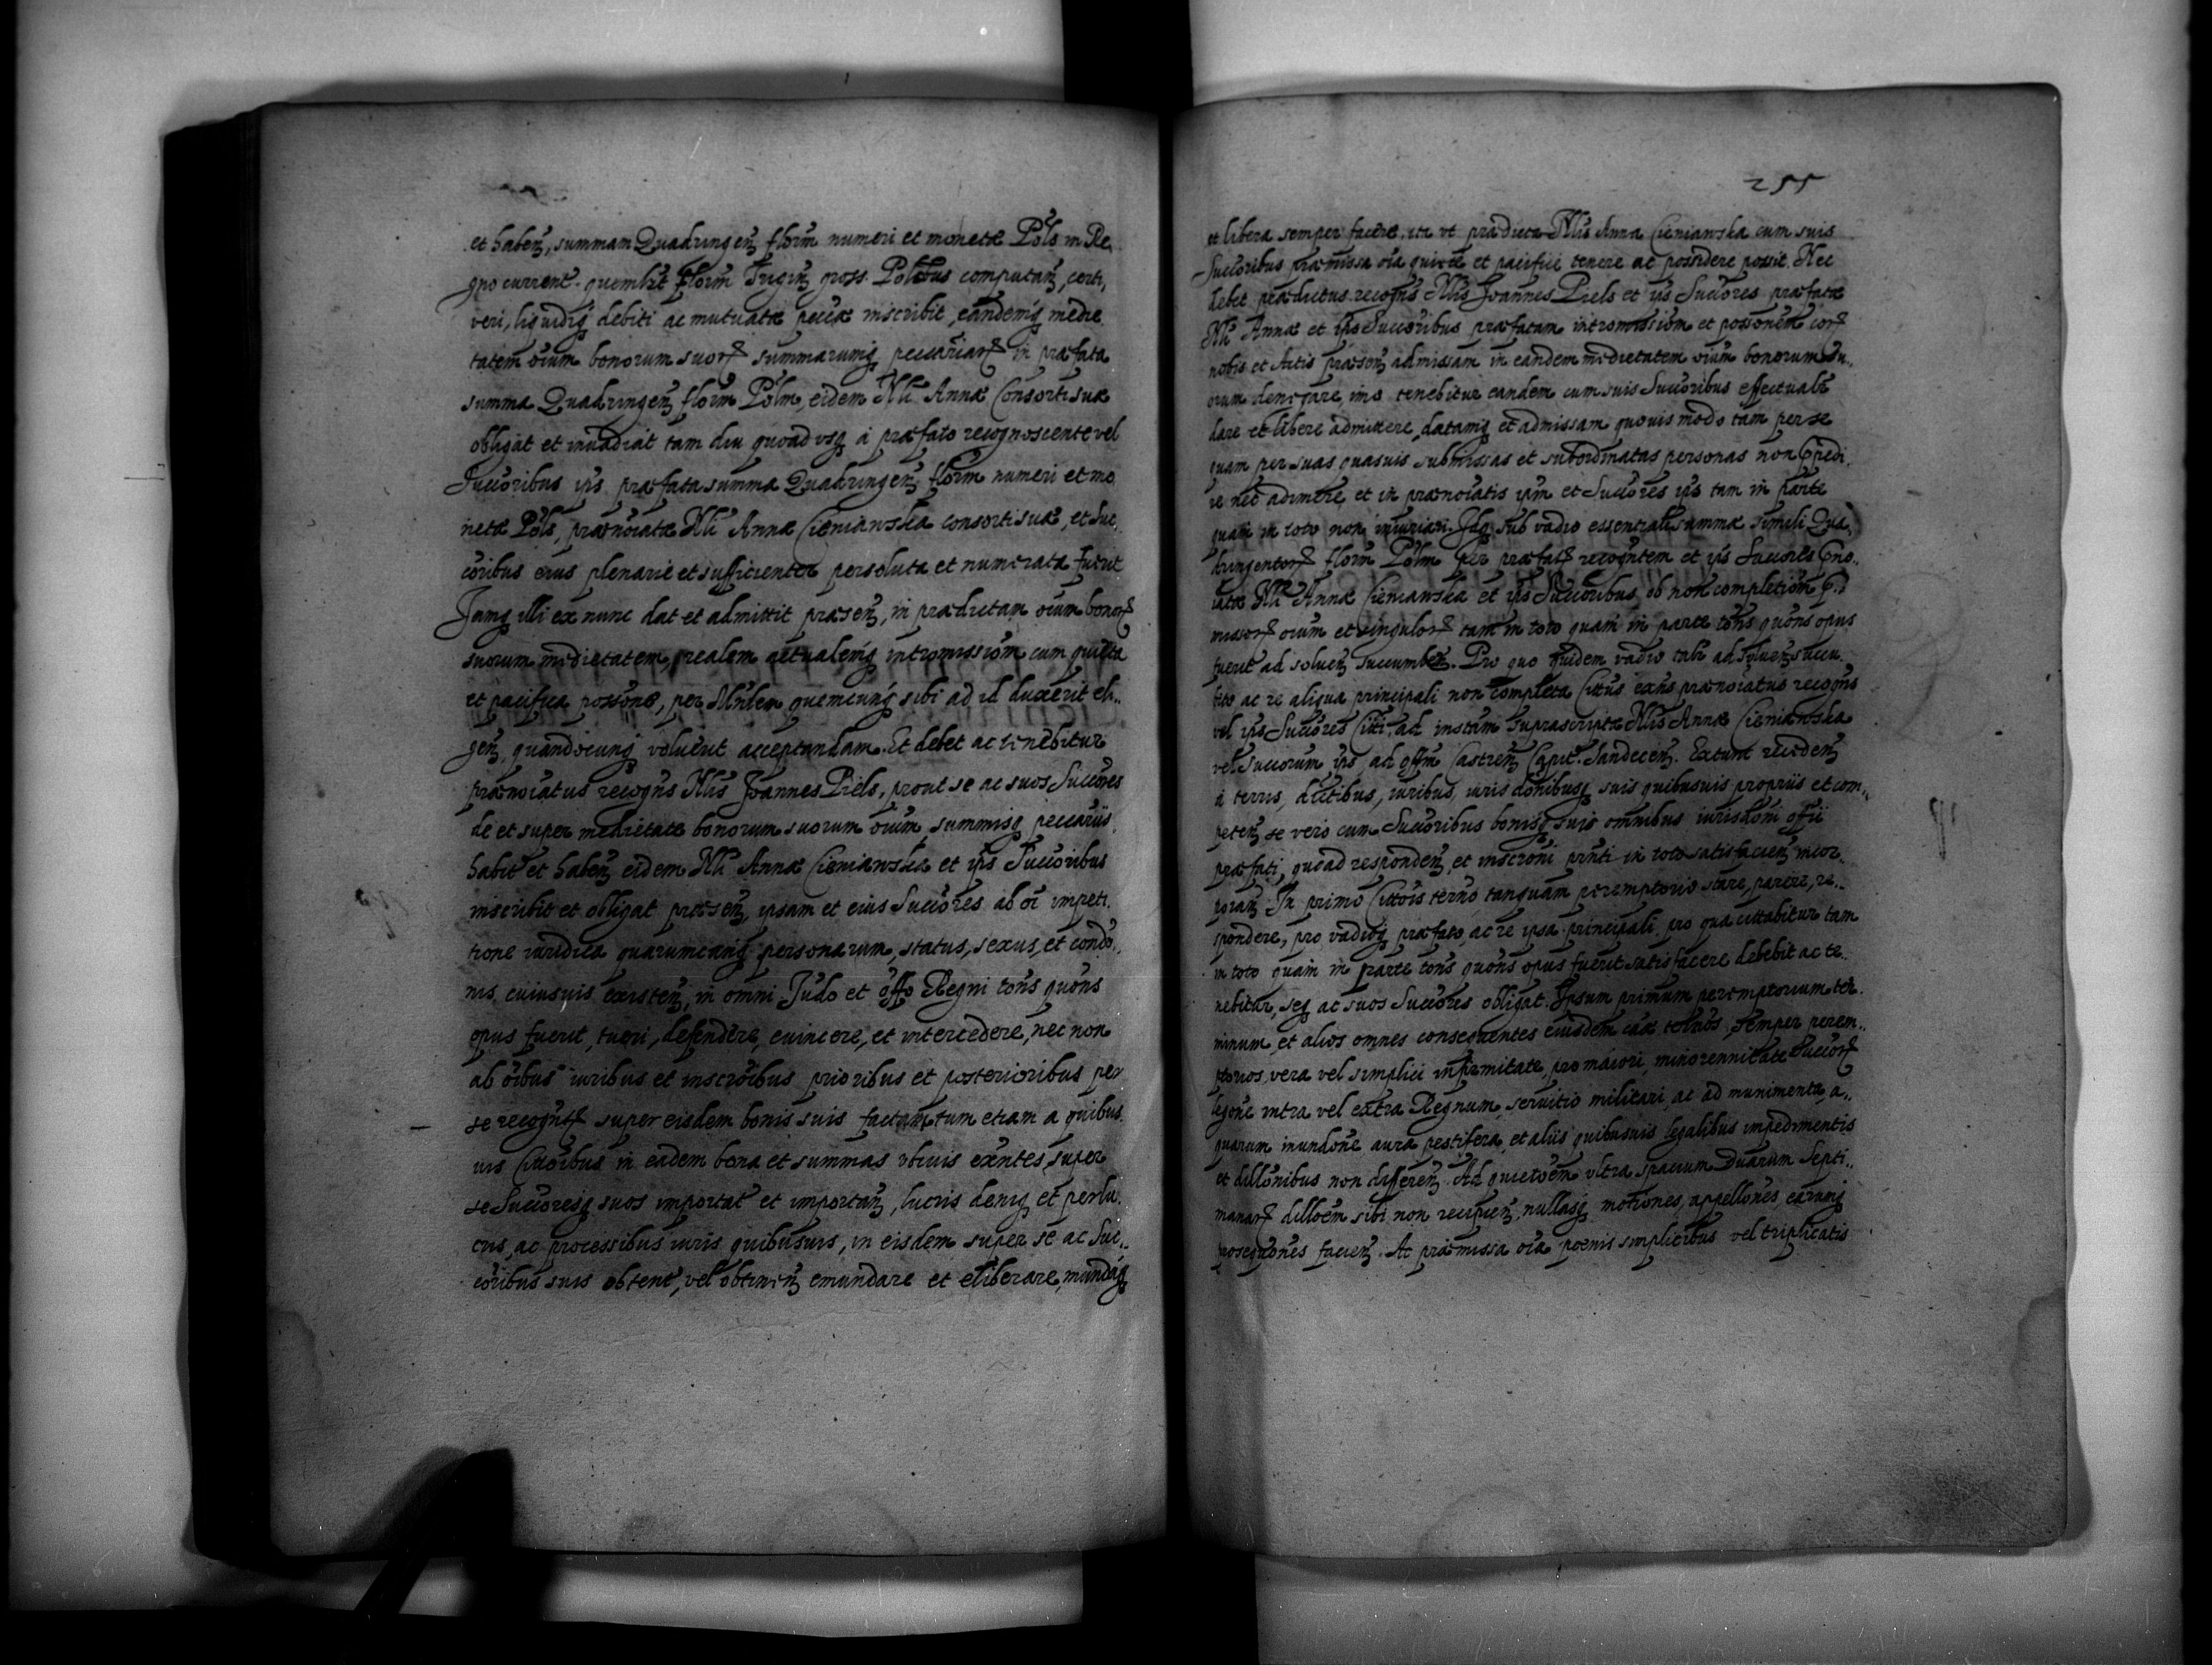 et haben, summam Quadringen florm numeri et monetæ Pols in Re
gno current. quemlt florm Trigin gross. Polibus computan, certi,
veri, liquidiq debiti ac mutuatæ pecæ inscribit, eandemq medie
tatem oium bonorum suor summarumq pecuariar in præfata
summa Quadringen florm Polm, eidem Nli Annæ Consorti suæ
obligat et inuadiat tam diu quoad vsq a præfato recognoscente vel
Succoribus ips præfata summa Quadringen florm numeri et mo
netæ Pols, prænoiatæ Nli Annæ Cieniawska consorti suæ, et Suc
coribus eius plenarie et sufficienter persoluta et numerata fuerit
Jamq illi ex nunc dat et admittit præsen, in prædictam oium bonor
suorum medietatem, realem actualemq intromissiom cum quieta
et pacifica possone, per Minlem quemcunq sibi ad id duxerit eli..
gen, quandocunq voluerit acceptandam. Et debet ac tenebitur
prænoiatus recogns Nlis Joannes Piels, prout se ac suos Succores
de et super medietate bonorum suorum oium, summisq pecuariis
habit et haben eidem Nli Annæ Cieniawska et ips Succoribus
inscribit et obligat præsen, ipsam et eius Succores ab oi impeti
tione iuridica quarumcunq personarum, status, sexus, et condo..
nis cuiusuis existen, in omni Judo et offo Regni tons quons
opus fuerit, tueri, defendere, euincere, et intercedere, nec non
ab oibus iuribus et inscroibus prioribus et posterioribus per
se recognt super eisdem bonis suis factam tum etiam a quibus
uis Cittoribus in eadem bona et summas vbiuis exntes, super
se Succoresq suos importat et importan, lucris deniq et perlu
cris, ac processibus iuris quibusuis, in eisdem super se ac Suc..
coribus suis obtent, vel obtinen emundare et eliberare, mundaq
255
et libera semper facere, ita vt prædicta Nlis Anna Cieniawska cum suis
Succoribus præmissa oia quiete et pacifice tenere ac possidere possit. Nec
debet prædictus recogns Nlis Joannes Piels et ips Succores præfatæ
Nli Annæ et ips Succoribus præfatam intromissiom et possonem cor
nobis et Actis præsen admissam in eandem medietatem oium bonorum su..
orum denegare, imo tenebitur eandem cum suis Succoribus effectualr
dare et libere admittere, datamq et admissam quouis modo tam per se
quam per suas quasuis submissas et subordinatas personas non
re nec adimere, et in prænoiatis ipm et Succores ips tam in parte
quam in toto non iniuriari. Idq sub vadio essentiali summæ simili Qua
dringentor florm Polm per præfat recogntem et ips Succores
iatæ Nli Annæ Cieniawska et ips Succoribus, ob non completiom
missor oium et singulor tam in toto quam in parte tons quons opus
fuerit ad soluen succumben. Pro quo quidem vadio tali ad soluen succu
bito ac re aliqua principali non completa Cittus exns prænoiatus recogns
vel ips Succores Citti, ad instam suprascriptæ Nlis Annæ Cieniawska
vel Succorum ips ad offm Castren Capit. Sandecen. Extunt receden
a terris, dittibus, iuribus, iuris donibusq suis quibusuis propriis et com..
peten se vero cum Succoribus bonisq suis omnibus iurisdoni offii
præfati, quoad responden, et inscroni prnti in toto satisfacien incor
poran. In primo Cittois terno tanquam peremptorio stare, parere, re..
spondere, pro vadioq præfato, ac re ipsa principali pro qua cittabitur tam
in toto quam in parte tons quons opus fuerit satisfacere debebit ac te
nebitur, seq ac suos Succores obligat. Ipsum primum peremptorium ter
minum, et alios omnes consequentes eiusdem cæ ternos, semper perem..
ptorios, vera vel simplici infirmitate, pro maiori, minorennitate Succor
legone intra vel extra Regnum, seruitio militari, ac ad munimenta a..
quarum inundone aura pestifera, et aliis quibusuis legalibus impedimentis
et dillonibus non differen. Ad quietoem vltra spacium Duarum Septi..
manar dilloem sibi non recipien, nullasq motiones, appellones, earumq
prosequones facien. Ac præmissa oia poenis simplicibus vel triplicatis